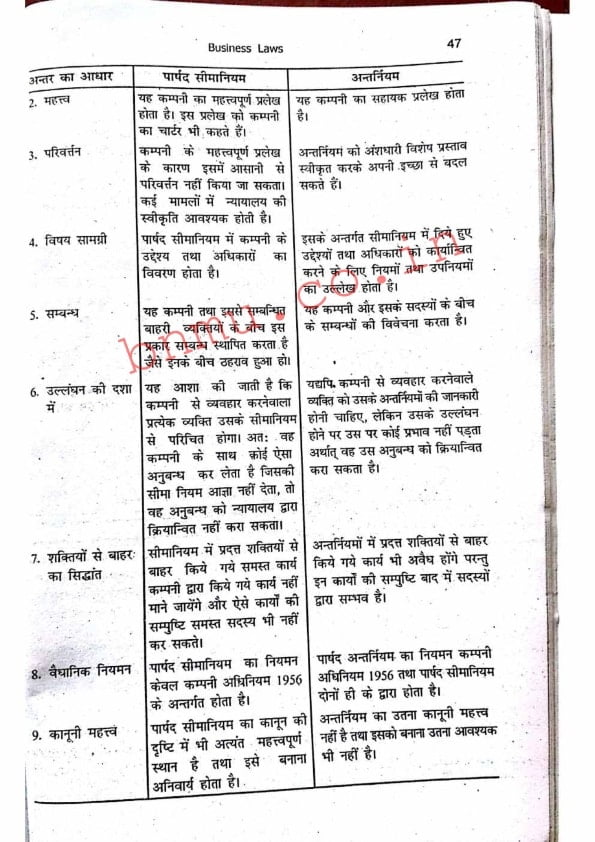 Business Laws
47
अन्तर का आधार
पार्षद सीमानियम
अन्तर्नियम
2. महत्त्व
यह कम्पनी का महत्त्वपूर्ण प्रलेख
होता है। इस प्रलेख को कम्पनी
का चार्टर भी कहते हैं।
यह कम्पनी का सहायक प्रलेख होता
है।
3. परिवर्त्तन
कम्पनी के महत्त्वपूर्ण प्रलेख
के कारण इसमें आसानी से
परिवर्तन नहीं किया जा सकता।
कई मामलों में न्यायालय की
स्वीकृति आवश्यक होती है।
अन्तर्नियम को अंशधारी विशेष प्रस्ताव
स्वीकृत करके अपनी इच्छा से बदल
सकते हैं।
4. विषय सामग्री
पार्षद सीमानियम में कम्पनी के
उद्देश्य तथा अधिकारों का
विवरण होता है।
इसके अन्तर्गत सीमानियम में दिये हुए
उद्देश्यों तथा अधिकारों को कार्यान्वित
करने के लिए नियमों तथा उपनियमों
का उल्लेख होता है।
5. सम्बन्ध
यह कम्पनी तथा इससे सम्बन्धित
बाहरी व्यक्तियों के बीच इस
प्रकार सम्बन्ध स्थापित करता है
जैसे इनके बीच ठहराव हुआ हो।
यह कम्पनी और इसके सदस्यों के बीच
के सम्बन्धों की विवेचना करता है।
6. उल्लंघन की दशा
में
यह आशा की जाती है कि
कम्पनी से व्यवहार करनेवाला
प्रत्येक व्यक्ति उसके सीमानियम
से परिचित होगा। अतः वह
कम्पनी के साथ कोई ऐसा
अनुबन्ध कर लेता है जिसकी
सीमा नियम आज्ञा नहीं देता, तो
वह अनुबन्ध को न्यायालय द्वारा
क्रियान्वित नहीं करा सकता।
यद्यपि कम्पनी से व्यवहार करनेवाले
व्यक्ति को उसके अन्तर्नियमों की जानकारी
होनी चाहिए, लेकिन उसके उल्लंघन
होने पर उस पर कोई प्रभाव नहीं पड़ता
अर्थात् वह उस अनुबन्ध को क्रियान्वित
करा सकता है।
7. शक्तियों से बाहर
का सिद्धांत
सीमानियम में प्रदत्त शक्तियों से
बाहर किये गये समस्त कार्य
कम्पनी द्वारा किये गये कार्य नहीं
माने जायेंगे और ऐसे कार्यों की
सम्पुष्टि समस्त सदस्य भी नहीं
कर सकते।
अन्तर्नियमों में प्रदत्त शक्तियों से बाहर
किये गये कार्य भी अवैध होंगे परन्तु
इन कार्यों की सम्पुष्टि बाद में सदस्यों
द्वारा सम्भव है।
8. वैधानिक नियमन
पार्षद सीमानियम का नियमन
केवल कम्पनी अधिनियम 1956
के अन्तर्गत होता है।
पार्षद अन्तर्नियम का नियमन कम्पनी
अधिनियम 1956 तथा पार्षद सीमानियम
दोनों ही के द्वारा होता है।
9. कानूनी महत्त्व
पार्षद सीमानियम का कानून की
दृष्टि में भी अत्यंत महत्त्वपूर्ण
स्थान है तथा इसे बनाना
अनिवार्य होता है।
अन्तर्नियम का उतना कानूनी महत्त्व
नहीं है तथा इसको बनाना उतना आवश्यक
भी नहीं है।
bnmu.co.in